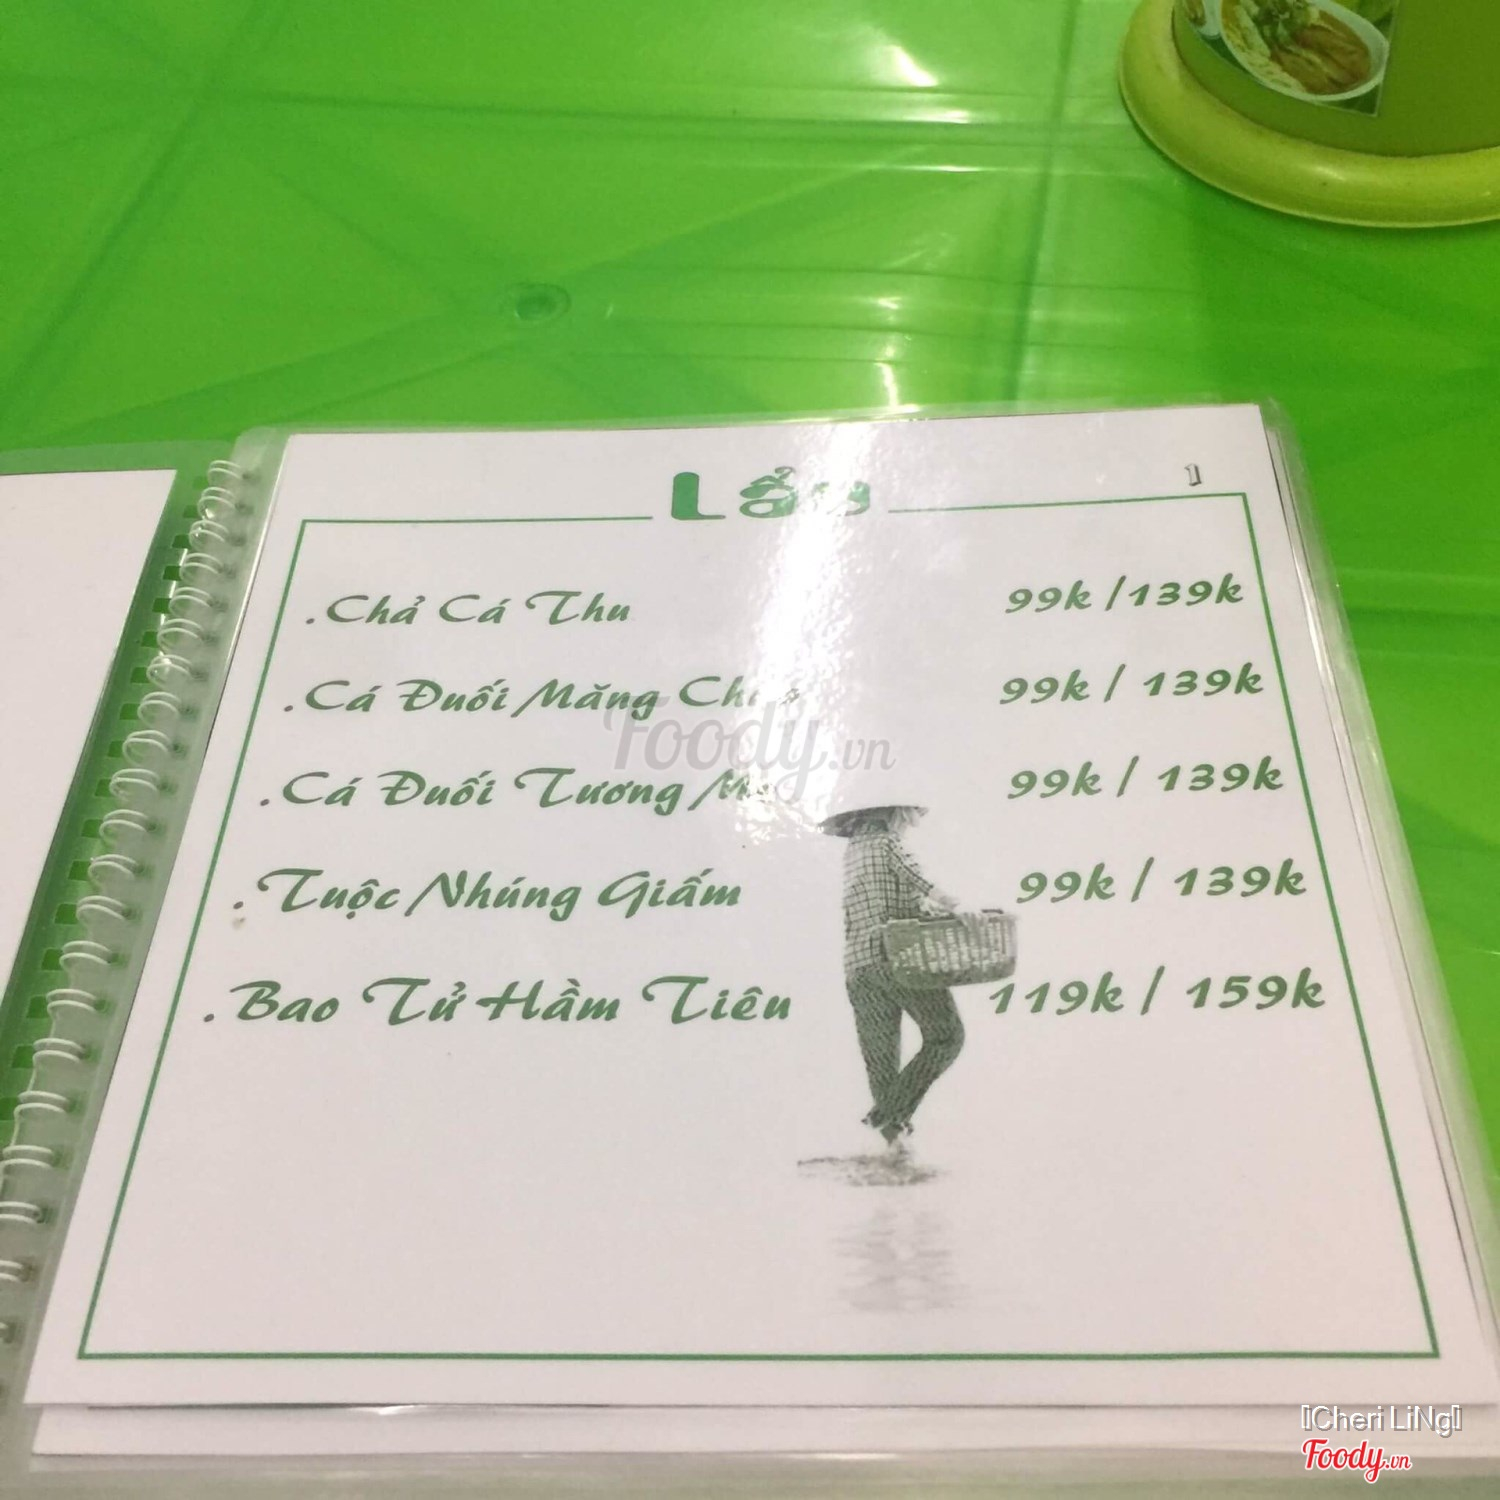 Lẩu
1
. Chả Cá Thu 99k / 139k
. Cá Đuối Măng Chua 99k / 139k
. Cá Đuối Tương Mẻ 99k / 139k
. Tuộc Nhúng Giấm 99k / 139k
. Bao Tử Hầm Tiêu 119k / 159k
Foody.vn
Cheri LiNg
Foody.vn